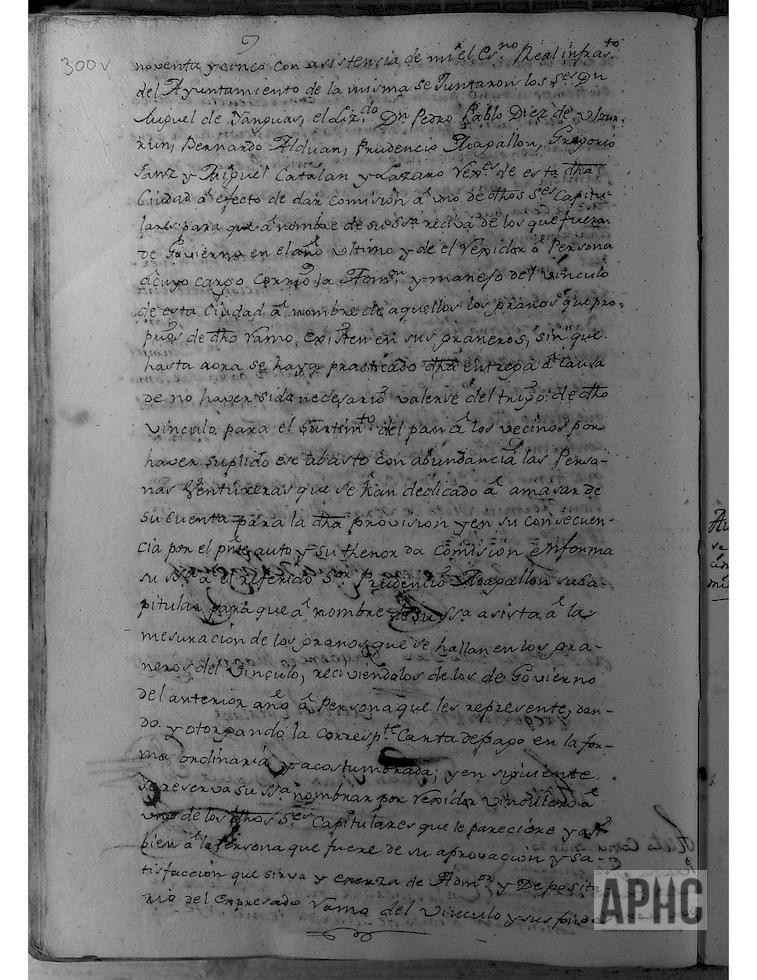 300v
noventa y cinco con asistencia de mi el Esno Real infrasto
del Ayuntamiento de la misma se Juntaron los Ses Dn
Miguel de Yanguas, el Lizdo Dn Pedro Pablo Diez de Ulzur-
run, Bernardo Alduan, Prudencio Agapallon, Gregorio
Sanz y Miguel Catalan y Lazaro Rexes de esta dha
Ciudad al efecto de dar Comision a uno de dhos Ses Capitu-
lares para que a nombre de su Sa reciva de los que fueron
de Govierno en el año ultimo y de el Rexidor o Persona
a cuyo cargo corrio la Admon y manejo del Vinculo
de esta Ciudad a nombre de aquellos los granos que pro-
prios de dho Ramo existen en sus graneros, sin que
hasta aora se haya practicado dha entrega a Causa
de no haver sido necesario valerse del trigo de dho
vinculo para el surtimto del pan a los vecinos por
haver suplido ese abasto con abundancia las Perso-
nas Ventureras que se han dedicado a amasar de
su cuenta para la dha provision y en su consecuen-
cia por el pnte auto y su thenor da Comision en forma
su Sa a el referido Sor Prudencio Agapallon su Ca-
pitular para que a nombre de su Sa asista a la
mesuracion de los granos que se hallan en los gra-
neros del Vinculo, reciviendolos de los de Govierno
del anterior año o Persona que les represente, dan-
do y otorgando la correspte Carta de pago en la for-
ma ordinaria y acostumbrada; y en siguiente
se reserva su Sa nombrar por Rexidor Vinculero a
uno de los dhos Ses Capitulares que le pareciere y assi
bien a la Persona que fuere de su aprovacion y sa-
tisfaccion que sirva y exerza de Admor y Deposita-
rio del expresado Ramo del Vinculo y sus
APHC